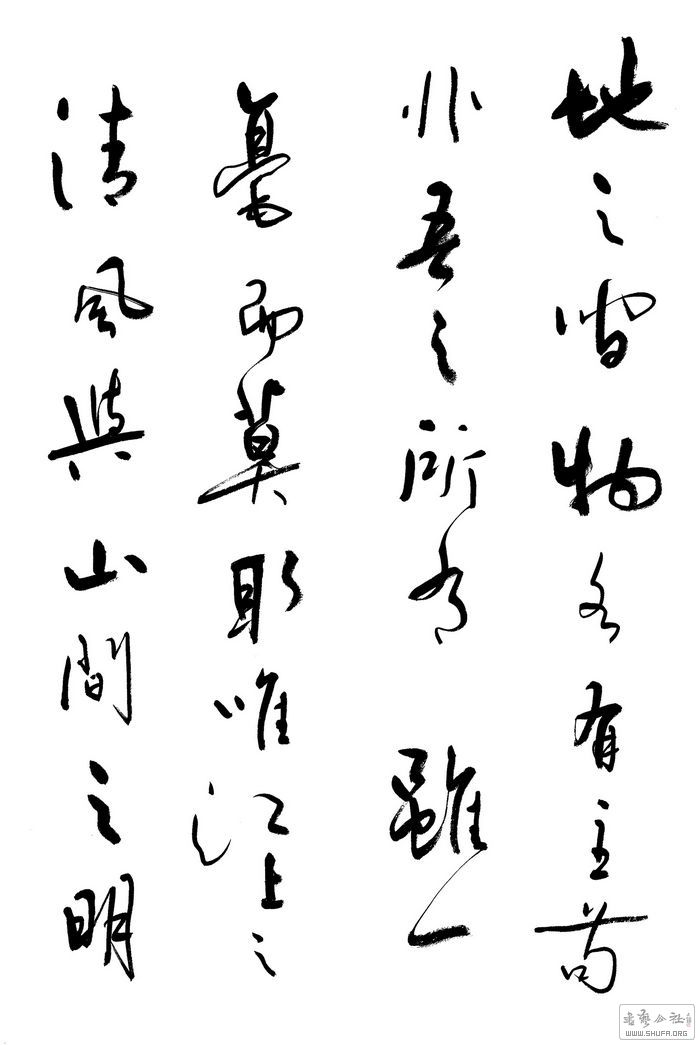 地之間物各有主苟
非吾之所有雖一
毫而莫取惟江上之
清風與山間之明
書藝公社
WWW.SHUFA.ORG